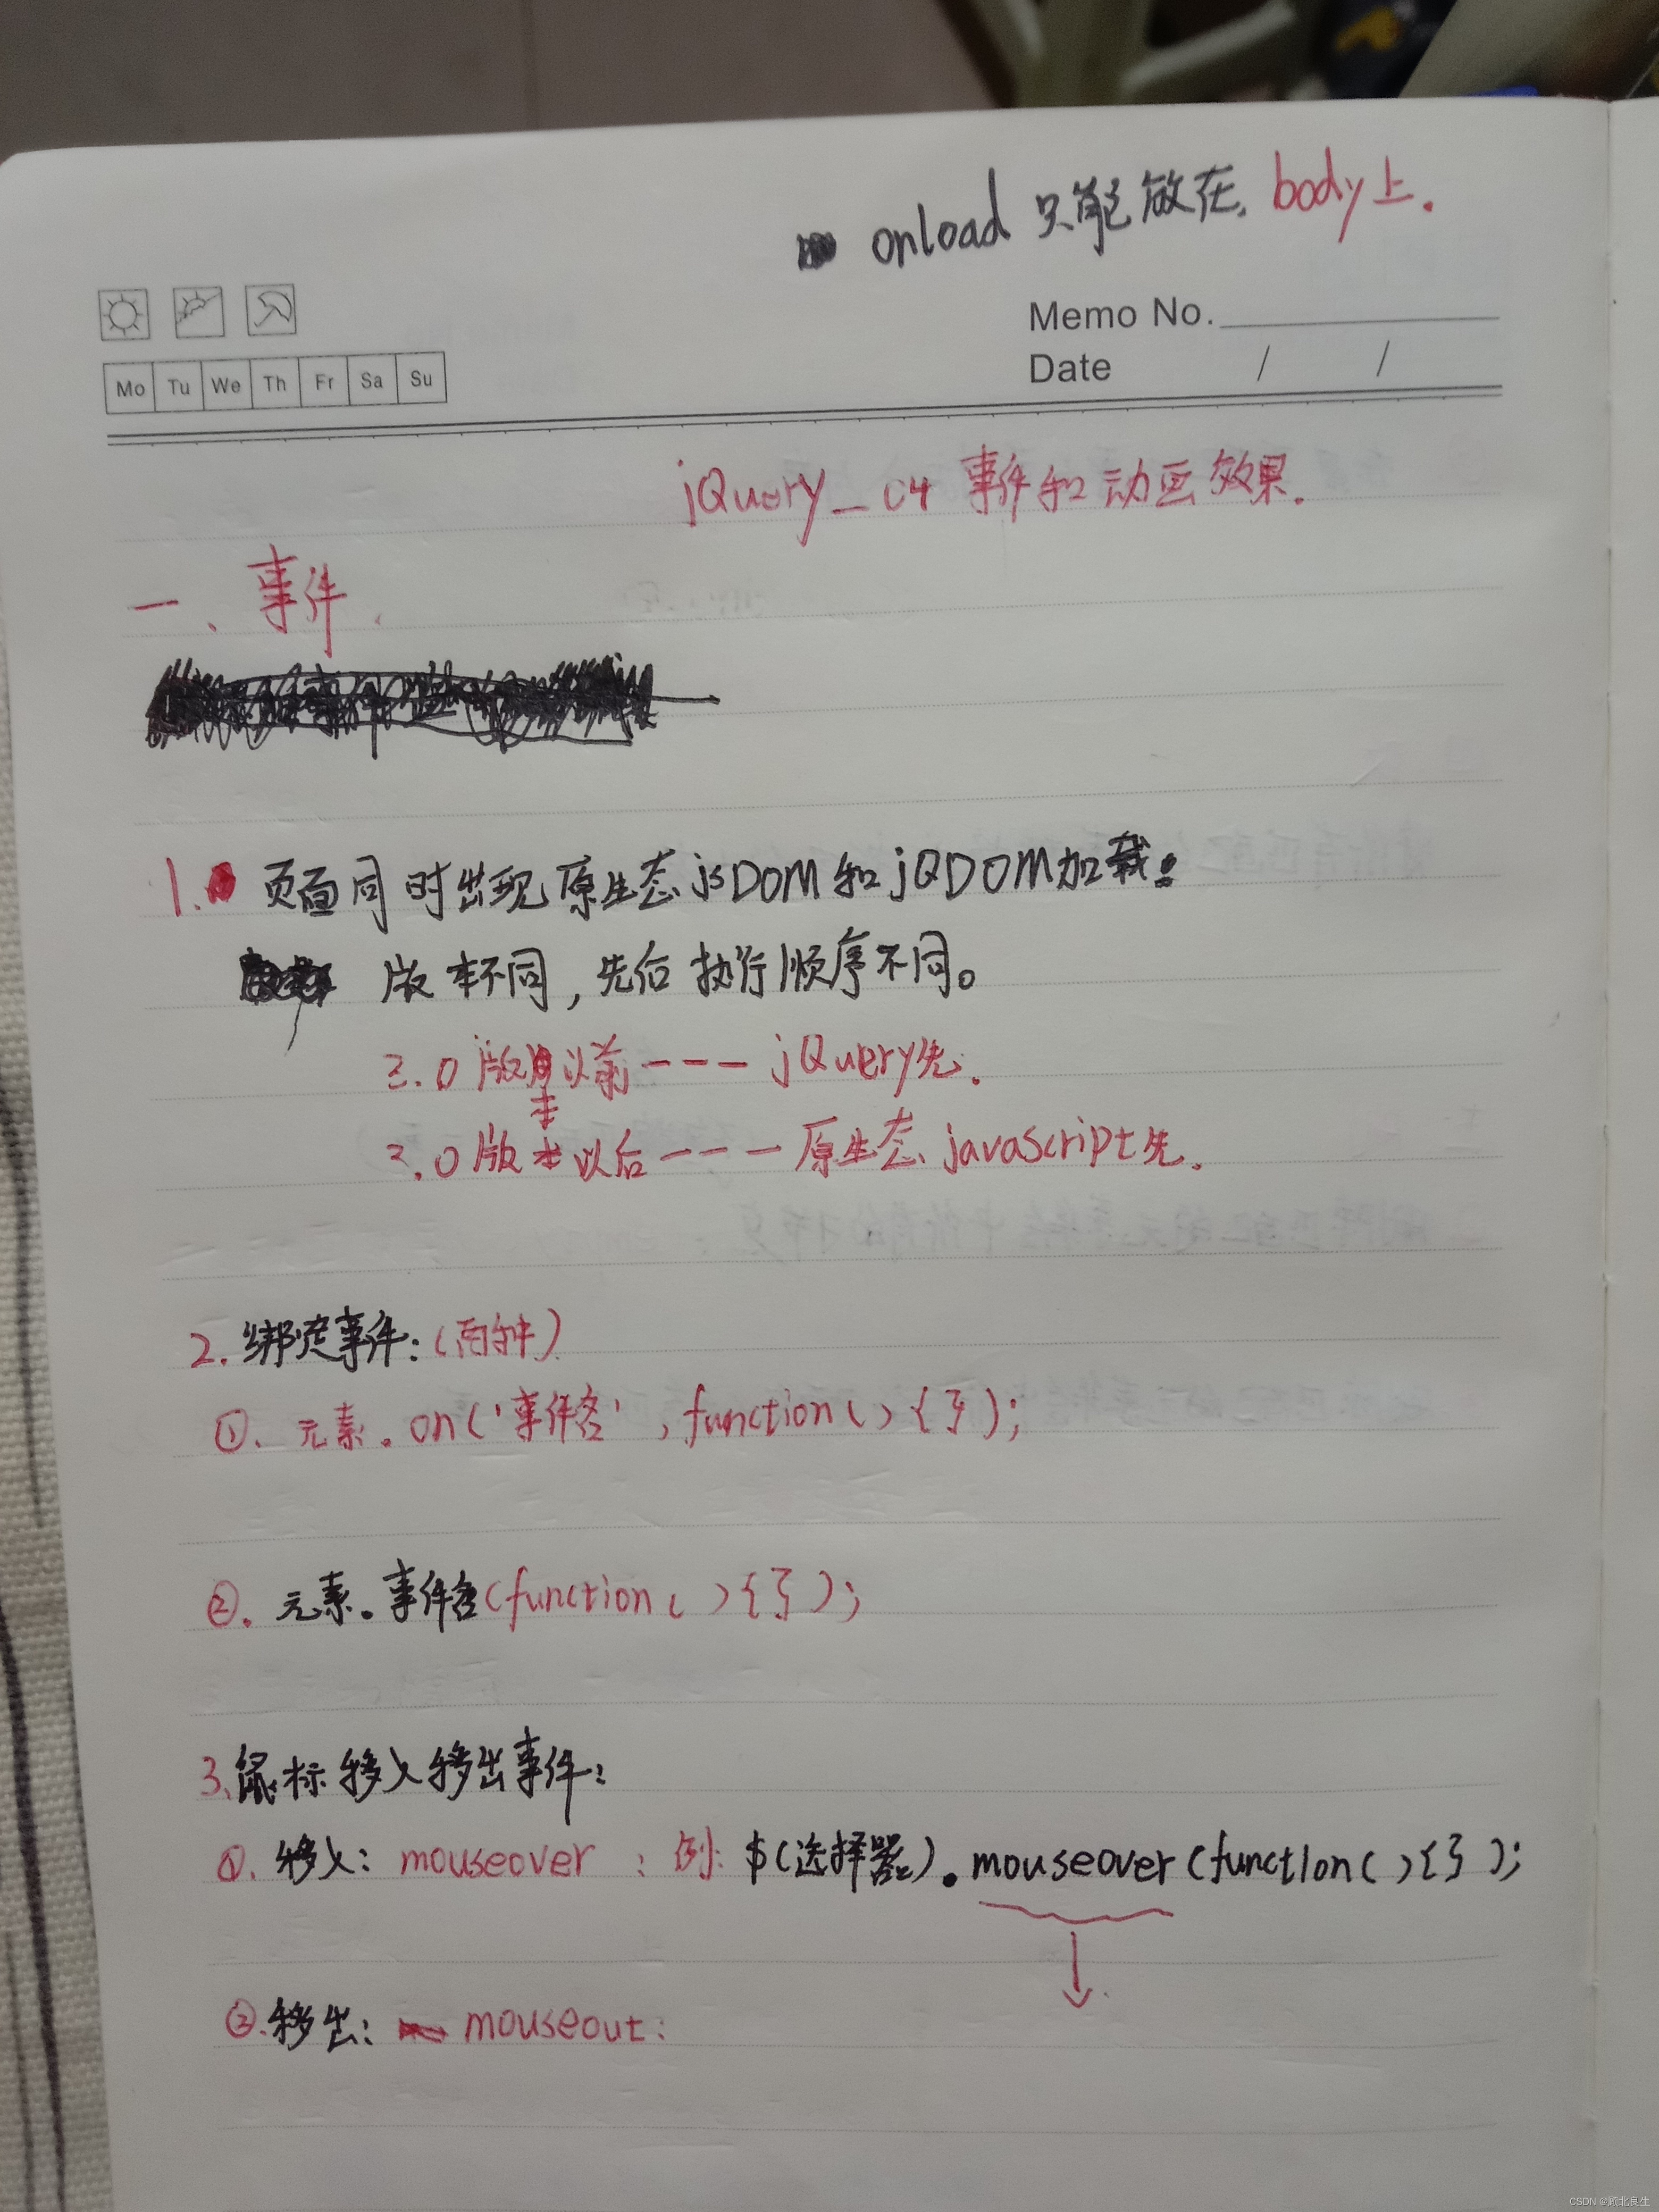 onload 只能放在. body上.
Memo No.
Date / /
Mo Tu We Th Fr Sa Su
jQuery_04 事件和动画效果.
一、事件.
1. 页面同时出现原生态jsDOM和jQDOM加载:
版本不同,先后执行顺序不同。
3.0版本以前---jQuery先.
3.0版本以后---原生态javascript先.
2.绑定事件:(两种)
①. 元素.on('事件名',function(){});
②. 元素.事件名(function(){});
3.鼠标移入移出事件:
①.移入:mouseover :例:$(选择器).mouseover(function(){});
②.移出: mouseout:
CSDN @顾北良生